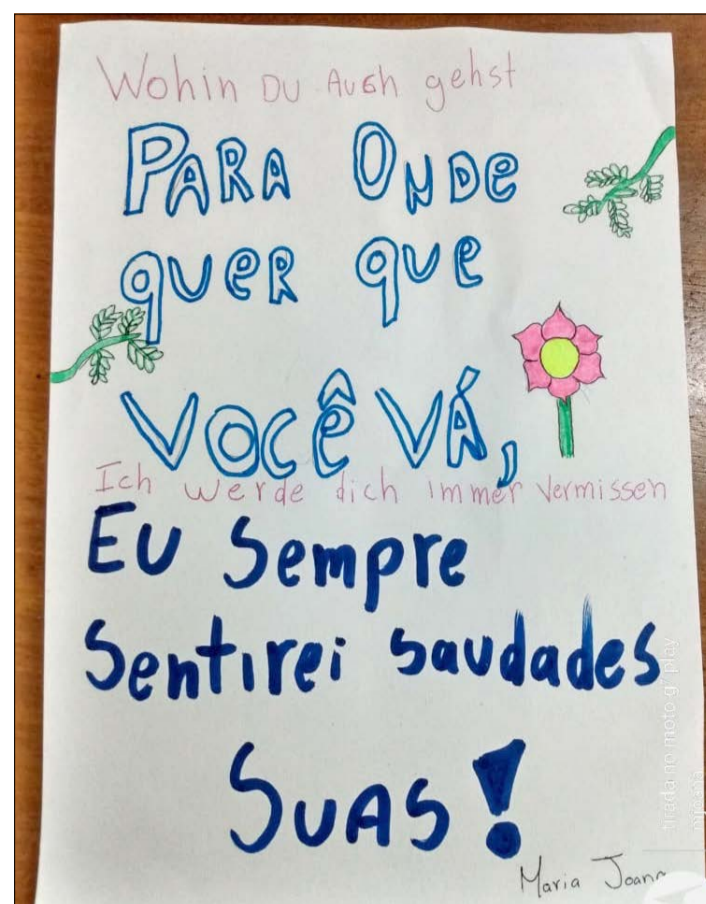 Wohin DU AUCh gehst
PARA ONDe
queR que
VOCÊ VÁ,
Ich werde dich immer vermissen
EU Sempre
Sentirei saudades
SUAS!
Maria Joana
tirada no moto g⁷ play